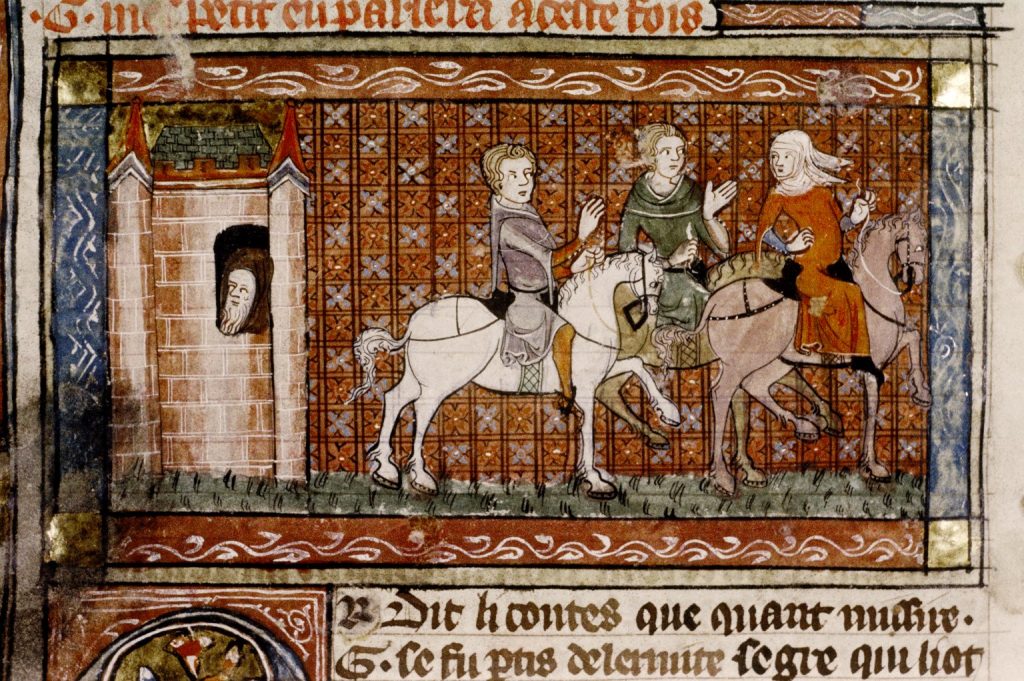 .G. petit en parlera a ceste fois
R Dit li contes que quant missire.
G. se fu ptis delermite segre qui liot